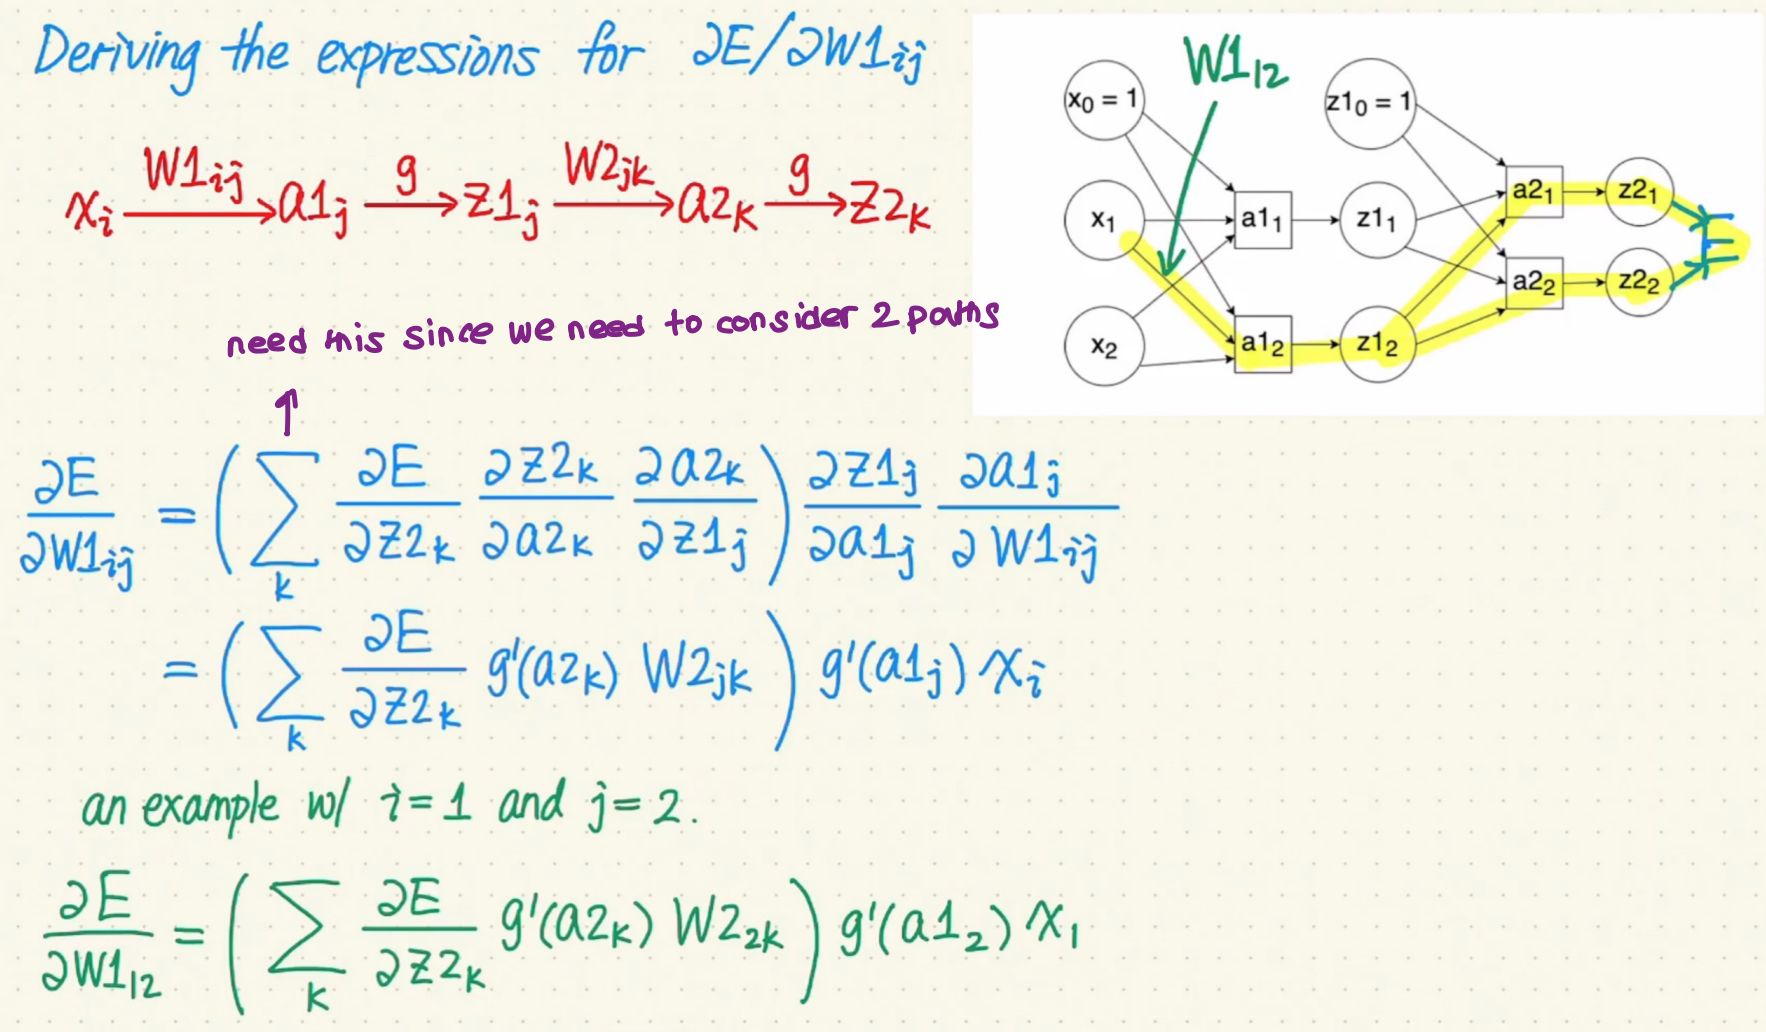 Deriving the expressions for ∂E/∂W1ij
xi W1ij→ a1j g→ z1j W2jk→ a2k g→ z2k
W1₁₂
x₀ = 1
z1₀ = 1
x₁
a1₁
z1₁
a2₁
z2₁
E
x₂
a1₂
z1₂
a2₂
z2₂
need this since we need to consider 2 paths
↑
∂E/∂W1ij = (∑k ∂E/∂z2k ∂z2k/∂a2k ∂a2k/∂z1j) ∂z1j/∂a1j ∂a1j/∂W1ij
= (∑k ∂E/∂z2k g'(a2k) W2jk) g'(a1j) xi
an example w/ i=1 and j=2.
∂E/∂W1₁₂ = (∑k ∂E/∂z2k g'(a2k) W2₂k) g'(a1₂) x₁